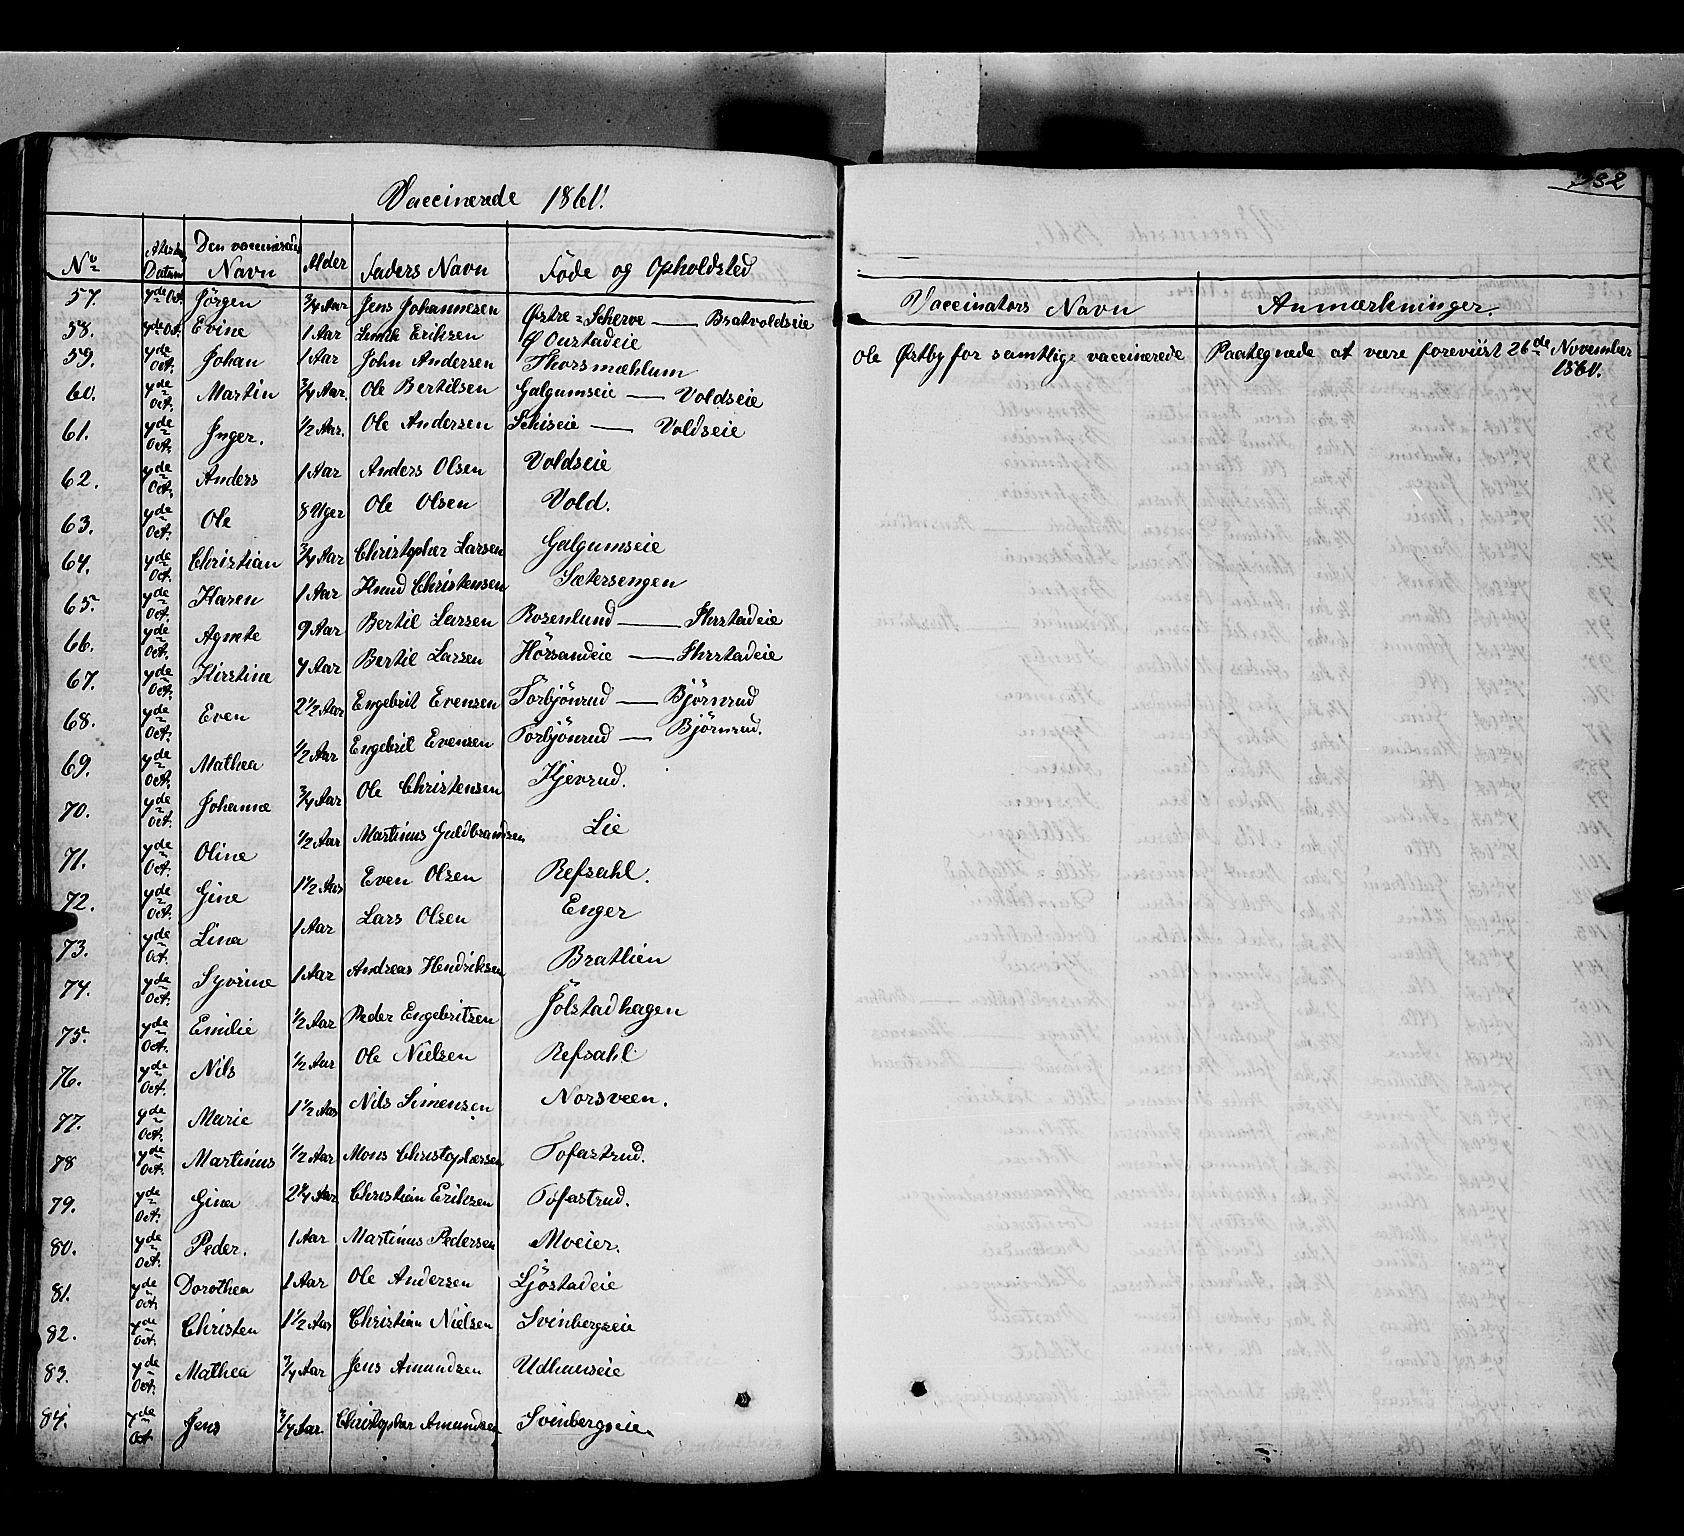 Vaccinerede 1861.
No Attestens Datum Den vaccineredes Navn Alder Faders Navn Føde og Opholdsted
57. 7de Oct. Jörgen 3/4 Aar Jens Johannesen Østre = Scherve — Bratvoldseie
58. 7de Oct. Evine 1 Aar Eriksen Ourstadeie
59. 7de Oct. Johan 1 Aar John Andersen Thorsmæhlum
60. 7de Oct. Martin 3/4 Aar. Ole Bertilsen Galgumseie — Voldseie
61. 7de Oct. Inger. 1/2 Aar. Ole Andersen Schiseie — Voldseie
62. 7de Oct. Anders 1 Aar Anders Olsen Voldseie
63. 7de Oct. Ole 8 Uger Ole Olsen Vold.
64. 7de Oct. Christian 3/4 Aar Christopher Larsen Galgumseie
65. 7de Oct. Karen 1 Aar Knud Christensen Sætersengen
66. 7de Oct. Agnete 9 Aar Bertil Larsen Rosenlund —
67. 7de Oct. Kirstine 7 Aar Bertil Larsen Hörsandeie —
68. 7de Oct. Even 2 1/2 Aar Engebrit Evensen Torbjönrud — Björnrud
69. 7de Oct. Mathea 1/2 Aar Engebrit Evensen Torbjönrud — Björnrud.
70. 7de Oct. Johanne 3/4 Aar Ole Christensen Kjevrud.
71. 7de Oct. Oline 1/2 Aar Martinus Guldbrandsen Lie
72. 7de Oct. Gine 1 1/2 Aar Even Olsen Refsahl.
73. 7de Oct. Lina 1 Aar Lars Olsen Enger
74. 7de Oct. Syvrine 1 Aar Andreas Hendriksen Bratlien
75. 7de Oct. Emilie 1/2 Aar Peder Engebritsen Jölstadhagen
76. 7de Oct. Nils 1/2 Aar Ole Nielsen Refsahl.
77. 7de Oct. Marie 1 1/2 Aar Nils Simensen Norsveen.
78 7de Oct. Martinus 1/2 Aar Mons Christophersen Tofastrud.
79. 7de Oct. Gina 2 1/4 Aar Christian Eriksen Tofastrud.
80. 7de Oct. Peder. 1 Aar Martinus Pedersen Moeier.
81. 7de Oct. Dorothea 1 Aar Ole Andersen Ljöstadeie
82. 7de Oct. Christen 1 1/2 Aar Christian Nielsen Svinbergseie
83. 7de Oct. Mathea 3/4 Aar Jens Amundsen Udhuuseie
84. 7de Oct Jens 3/4 Aar. Christopher Amundsen Svinbergseie.
332
Vaccinators Navn Anmærkninger.
Ole Østby for samtlige vaccinerede Paategnede at være foreviist 26de November
1861.